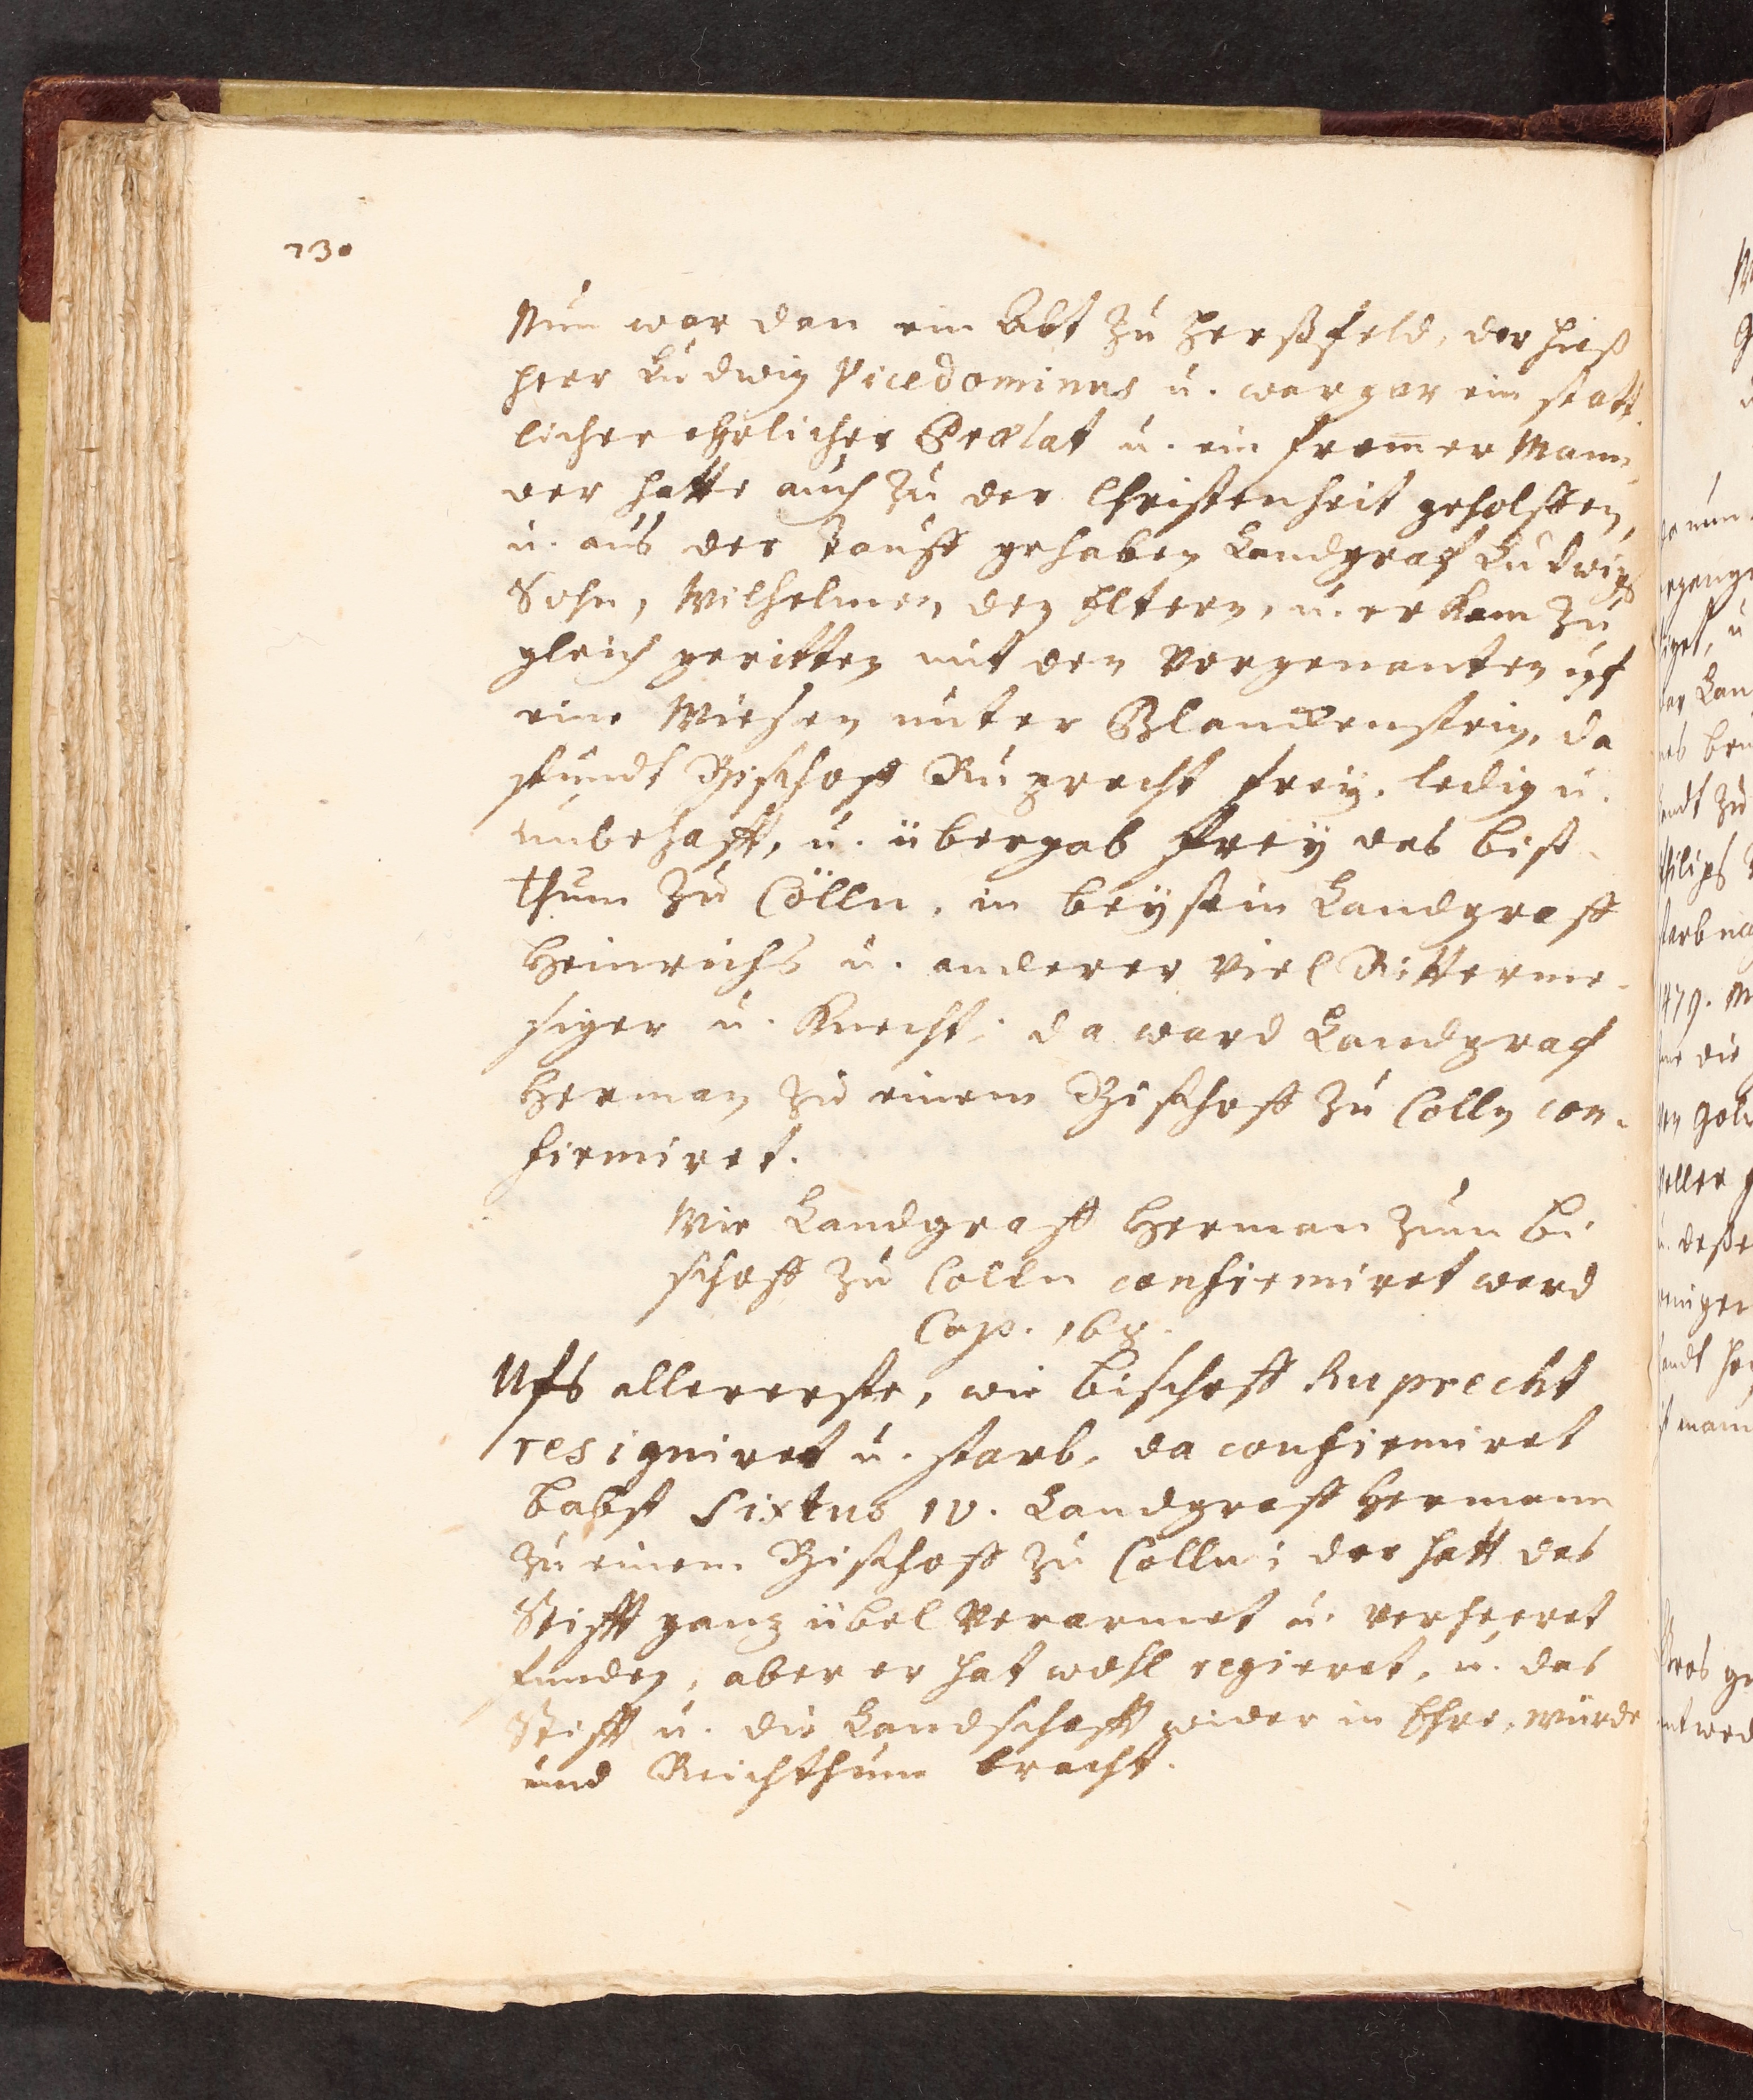 730
Nun war den ein Abt zu Herßfeld, der hieß
Herr Ludwig Vicedominus u. war gar ein statt-
licher ehrlicher Prælat u. ein from̄er Mann,
der hatte auch zu der Christenheit geholffen,
u. aus der Tauffe gehaben Landgraf Ludwigs
Sohn, Wilhelmen, den Eltern, u. er kam zu
gleich geritten mit den vorgenanten uff
eine Wiesen unter Blanckenstein, da
stundt Bischoff Ruprecht frey, ledig u.
unbehafft, u. übergab frey das bis-
thum zu Cölln, in beysein Landgraff
Heinrichs u. anderer viel Ritterme-
ßiger u. Knecht; da ward Landgraf
Herman zu einem Bischoff zu Colln con-
firmiret.
Wie Landgraff Herman zum Bi
schoff zu Colln confirmiret ward
Cap. 168.
Ufs allererste, wie Bischoff Ruprecht
resigniret u. starb, da confirmiret
Babst Sixtus IV. Landgraff Hermann
zu einem Bischoff zu Colln; der hatt das
Stifft ganz übel verarmet u. verheeret
funden, aber er hat wohl regieret, u. das
Stifft u. die Landschafft wider in Ehre, würde
und Reichthum bracht.